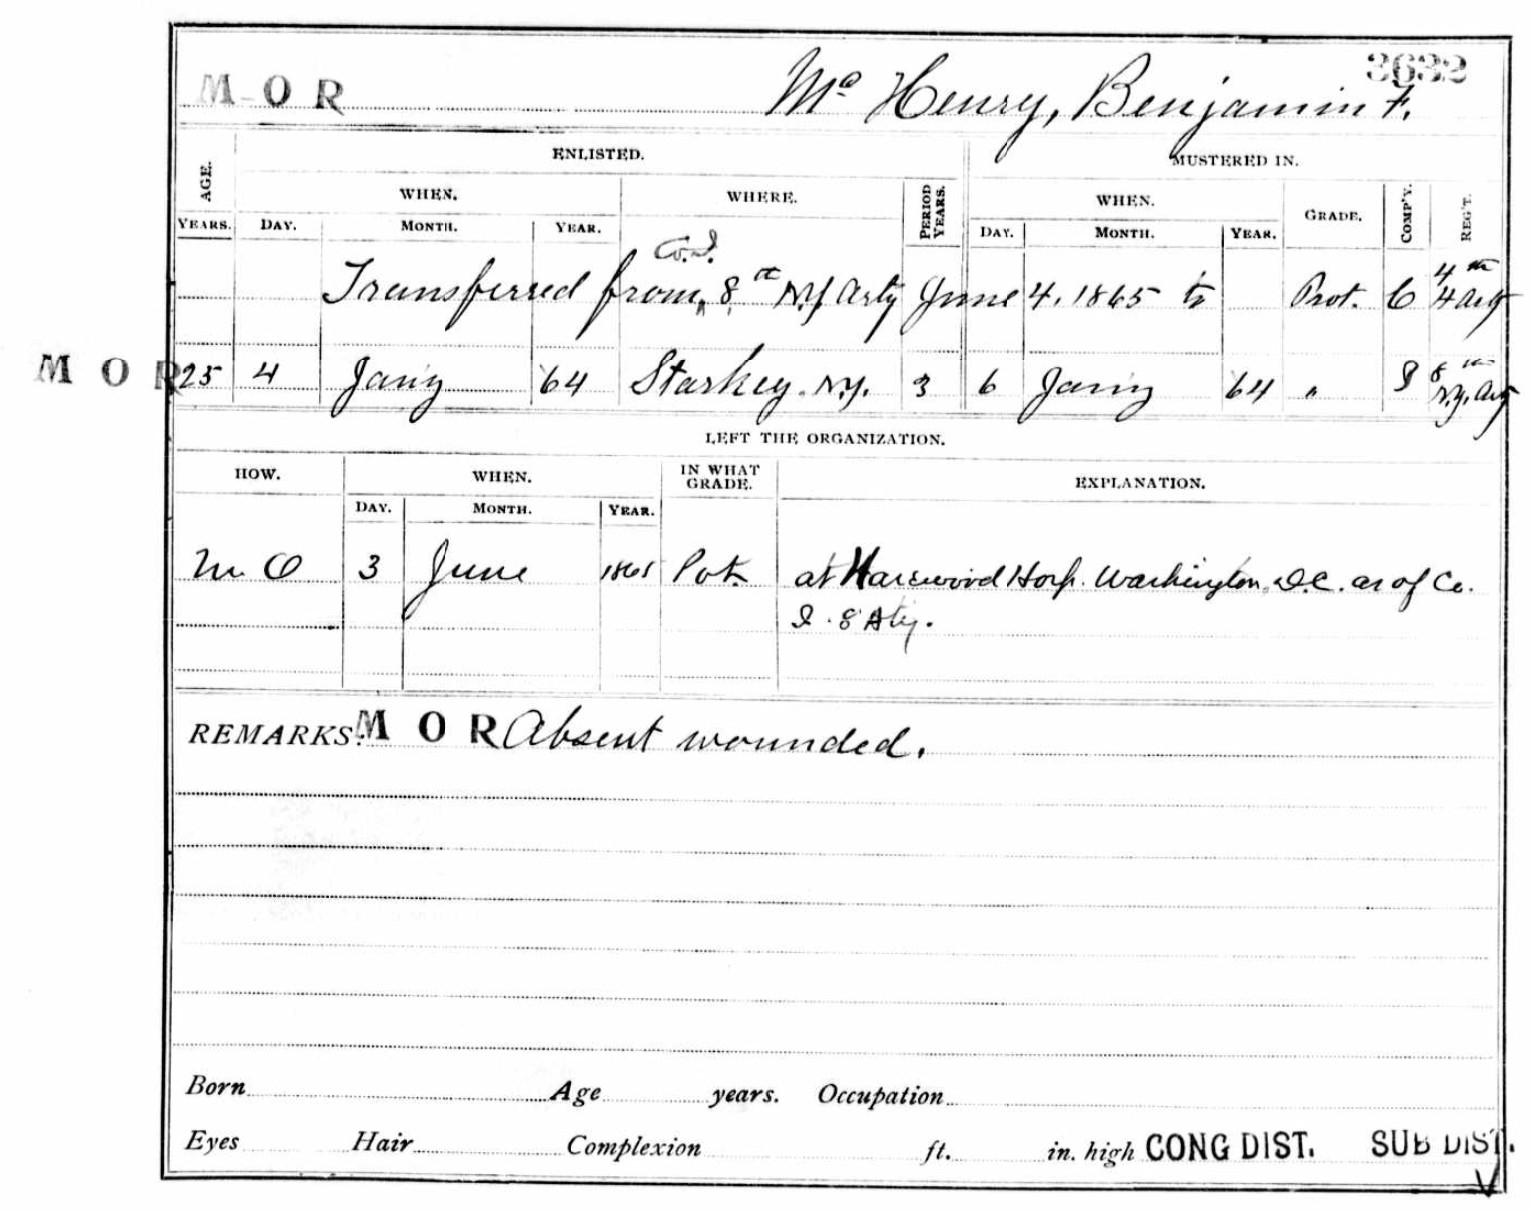 3632
M O R Mc Henry, Benjamin F.
ENLISTED. MUSTERED IN.
AGE. WHEN. WHERE. PERIOD YEARS. WHEN. GRADE. COMP'Y. REG'T.
YEARS. DAY. MONTH. YEAR. DAY. MONTH. YEAR.
Co. I.
Transferred from 8th N.Y. Arty June 4, 1865 to Pvt. C 4th Arty
M O R 25 4 Jan'y 64 Starkey N.Y. 3 6 Jan'y 64 " I 8th N.Y. Arty
LEFT THE ORGANIZATION.
HOW. WHEN. IN WHAT GRADE. EXPLANATION.
DAY. MONTH. YEAR.
M O 3 June 1865 Pvt. at Harewood Hosp. Washington, D.C. as of Co.
I. 8 Aty.
REMARKS: M O R Absent wounded.
Born Age years. Occupation
Eyes Hair Complexion ft. in. high CONG DIST. SUB DIST.